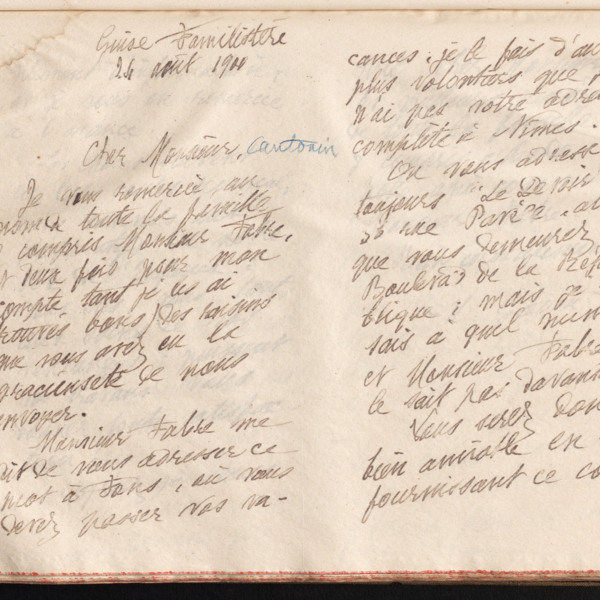 Guise Familistère
24 août 1900
Cher Monsieur, Cantonin
Je vous remercie au
nom de toute la famille
y compris Monsieur Fabre,
et deux fois pour mon
compte tant je les ai
trouvés bons, des raisins
que vous avez eu la
gracieuseté de nous
envoyer.
Monsieur Fabre me
dit de vous adresser ce
mot à Fons, où vous
devez passer vos va-
cances; je le fais d'au
plus volontiers que
n'ai pas votre adre
complète à Nîmes.
On vous adresse
toujours Le Devoir
que vous demeurez
Boulevard de la Répu
blique; mais
sais à quel num
et Monsieur Fabre
le sait pas davan
Vous serez don
bien aimable en
fournissant ce co